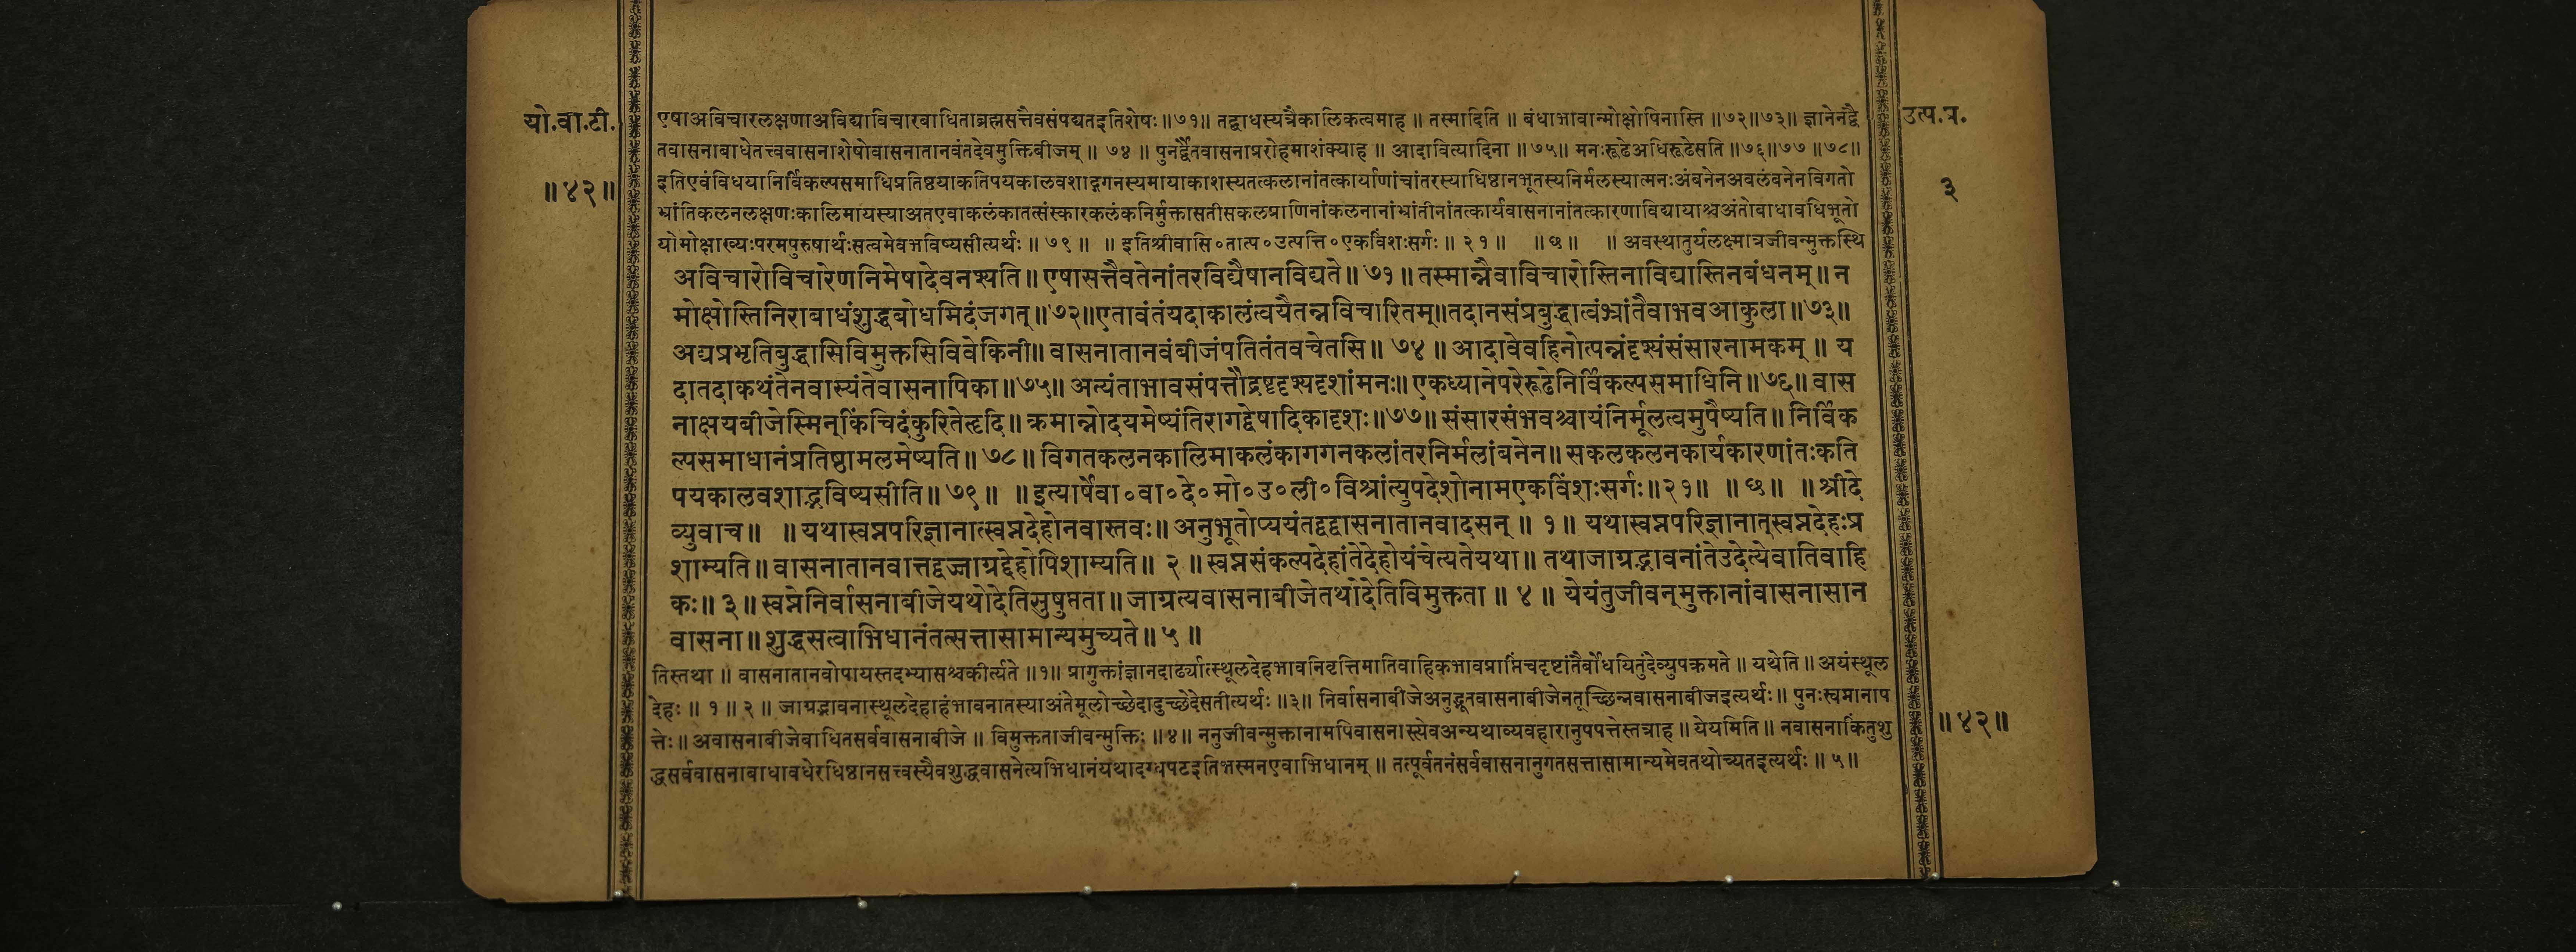 यो.वा.टी.
॥४२॥
उत्प.प्र.
३
एषाअविचारलक्षणाअविद्याविचारबाधिताब्रह्मसत्तैवसंपद्यतइतिशेषः॥७१॥ तद्बाधस्यत्रैकालिकत्वमाह ॥ तस्मादिति ॥ बंधाभावान्मोक्षोपिनास्ति ॥७२॥७३॥ ज्ञानेनंद्वै
तवासनाबाधेतत्त्ववासनाशेषोवासनातानवंतदेवमुक्तिबीजम् ॥ ७४ ॥ पुनर्द्वैतवासनाप्ररोहमाशंक्याह ॥ आदावित्यादिना ॥७५॥ मनःरूढेअधिरूढेसति ॥७६॥७७॥७८॥
इतिएवंविधयानिर्विकल्पसमाधिप्रतिष्ठयाकतिपयकालवशाद्गगनस्यमायाकाशस्यतत्कलानांतत्कार्याणांचांतरस्याधिष्ठानभूतस्यनिर्मलस्यात्मनःअंबनेनअवलंबनेनविगतो
भ्रांतिकलनलक्षणःकालिमायस्याअतएवाकलंकातत्संस्कारकलंकनिर्मुक्तासतीसकलप्राणिनांकलनानांभ्रांतीनांतत्कार्यवासनानांतत्कारणाविद्यायाश्चअंतोबाधावधिभूतो
योमोक्षाख्यःपरमपुरुषार्थःसत्वमेवभविष्यसीत्यर्थः ॥ ७९ ॥ ॥ इतिश्रीवासि॰तात्प॰उत्पत्ति॰एकविंशःसर्गः ॥ २१ ॥ ॥ छ ॥ ॥ अवस्थातुर्यलक्ष्मात्रजीवन्मुक्तस्थि
अविचारोविचारेणनिमेषादेवनश्यति॥ एषासत्तैवतेनांतरविद्यैषानविद्यते॥ ७१ ॥ तस्मान्नैवाविचारोस्तिनाविद्यास्तिनबंधनम्॥ न
मोक्षोस्तिनिराबाधंशुद्धबोधमिदंजगत्॥७२॥एतावंतंयदाकालंत्वयैतन्नविचारितम्॥तदानसंप्रबुद्धात्वंभ्रांतैवाभवआकुला॥७३॥
अद्यप्रभृतिबुद्धासिविमुक्तसिविवेकिनी॥ वासनातानवंबीजंपतितंतवचेतसि॥ ७४ ॥ आदावेवहिनोत्पन्नंदृश्यंसंसारनामकम् ॥ य
दातदाकथंतेनवास्यंतेवासनापिका॥७५॥ अत्यंताभावसंपत्तौद्रष्टृदृश्यदृशांमनः॥ एकध्यानेपरेरूढेनिर्विकल्पसमाधिनि॥७६॥ वास
नाक्षयबीजेस्मिन्किंचिदंकुरितेहृदि॥ क्रमान्नोदयमेष्यंतिरागद्वेषादिकादृशः॥७७॥ संसारसंभवश्चायंनिर्मूलत्वमुपैष्यति॥ निर्विक
ल्पसमाधानंप्रतिष्ठामलमेष्यति॥ ७८॥ विगतकलनकालिमाकलंकागगनकलांतरनिर्मलांबनेन॥ सकलकलनकार्यकारणांतःकति
पयकालवशाद्भविष्यसीति॥ ७९॥ ॥इत्यार्षेवा॰वा॰दे॰मो॰उ॰ली॰विश्रांत्युपदेशोनामएकविंशःसर्गः॥२१॥ ॥ छ॥ ॥ श्रीदे
व्युवाच॥ ॥ यथास्वप्नपरिज्ञानात्स्वप्नदेहोनवास्तवः॥ अनुभूतोप्ययंतद्वद्वासनातानवादसन् ॥ १॥ यथास्वप्नपरिज्ञानात्स्वप्नदेहःप्र
शाम्यति॥ वासनातानवात्तद्वज्जाग्रद्देहोपिशाम्यति॥ २ ॥ स्वप्नसंकल्पदेहांतेदेहोयंचेत्यतेयथा॥ तथाजाग्रद्भावनांतेउदेत्येवातिवाहि
कः॥ ३॥ स्वप्नेनिर्वासनाबीजेयथोदेतिसुषुप्तता॥ जाग्रत्यवासनाबीजेतथोदेतिविमुक्तता ॥ ४ ॥ येयंतुजीवन्मुक्तानांवासनासान
वासना॥ शुद्धसत्वाभिधानंतत्सत्तासामान्यमुच्यते॥ ५ ॥
तिस्तथा ॥ वासनातानवोपायस्तदभ्यासश्चकीर्त्यते ॥१॥ प्रागुक्तांज्ञानदार्ढ्यात्स्थूलदेहभावनिवृत्तिमातिवाहिकभावप्राप्तिंचदृष्टांतैर्बोधयितुंदेव्युपक्रमते ॥ यथेति ॥ अयंस्थूल
देहः ॥ १ ॥ २ ॥ जाग्रद्भावनास्थूलदेहाहंभावनातस्याअंतेमूलोच्छेदादुच्छेदेसतीत्यर्थः ॥३॥ निर्वासनाबीजेअनुद्भूतवासनाबीजेनतूच्छिन्नवासनाबीजइत्यर्थः॥ पुनःस्वप्नानाप
त्तेः॥ अवासनाबीजेबाधितसर्ववासनाबीजे ॥ विमुक्तताजीवन्मुक्तिः ॥४॥ ननुजीवन्मुक्तानामपिवासनास्त्येवअन्यथाव्यवहारानुपपत्तेस्तत्राह ॥ येयमिति ॥ नवासनाकिंतुशु
द्धसर्ववासनाबाधावधेरधिष्ठानसत्त्वस्यैवशुद्धवासनेत्यभिधानंयथादग्धपटइतिभस्मनएवाभिधानम् ॥ तत्पूर्वतनंसर्ववासनानुगतसत्तासामान्यमेवतथोच्यतइत्यर्थः ॥ ५॥
॥४२॥